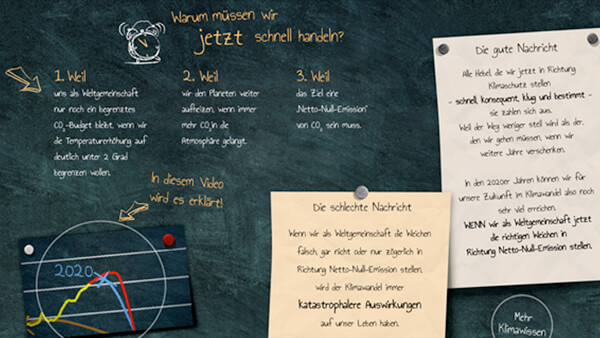 Warum müssen wir
jetzt schnell handeln?
1. Weil
uns als Weltgemeinschaft
nur noch ein begrenztes
CO₂-Budget bleibt, wenn wir
die Temperaturerhöhung auf
deutlich unter 2 Grad
begrenzen wollen.
2. Weil
wir den Planeten weiter
aufheizen, wenn immer
mehr CO₂ in die
Atmosphäre gelangt.
3. Weil
das Ziel eine
„Netto-Null-Emission“
von CO₂ sein muss.
In diesem Video
wird es erklärt!
2020
Die schlechte Nachricht
Wenn wir als Weltgemeinschaft die Weichen
falsch, gar nicht oder nur zögerlich in
Richtung Netto-Null-Emission stellen,
wird der Klimawandel immer
katastrophalere Auswirkungen
auf unser Leben haben.
Die gute Nachricht
Alle Hebel, die wir jetzt in Richtung
Klimaschutz stellen
- schnell, konsequent, klug und bestimmt -
sie zahlen sich aus.
Weil der Weg weniger steil wird als der,
den wir gehen müssen, wenn wir
weitere Jahre verschenken.
In den 2020er Jahren können wir für
unsere Zukunft im Klimawandel also noch
sehr viel erreichen.
WENN wir als Weltgemeinschaft jetzt
die richtigen Weichen in
Richtung Netto-Null-Emission stellen.
Mehr
KlimaWissen